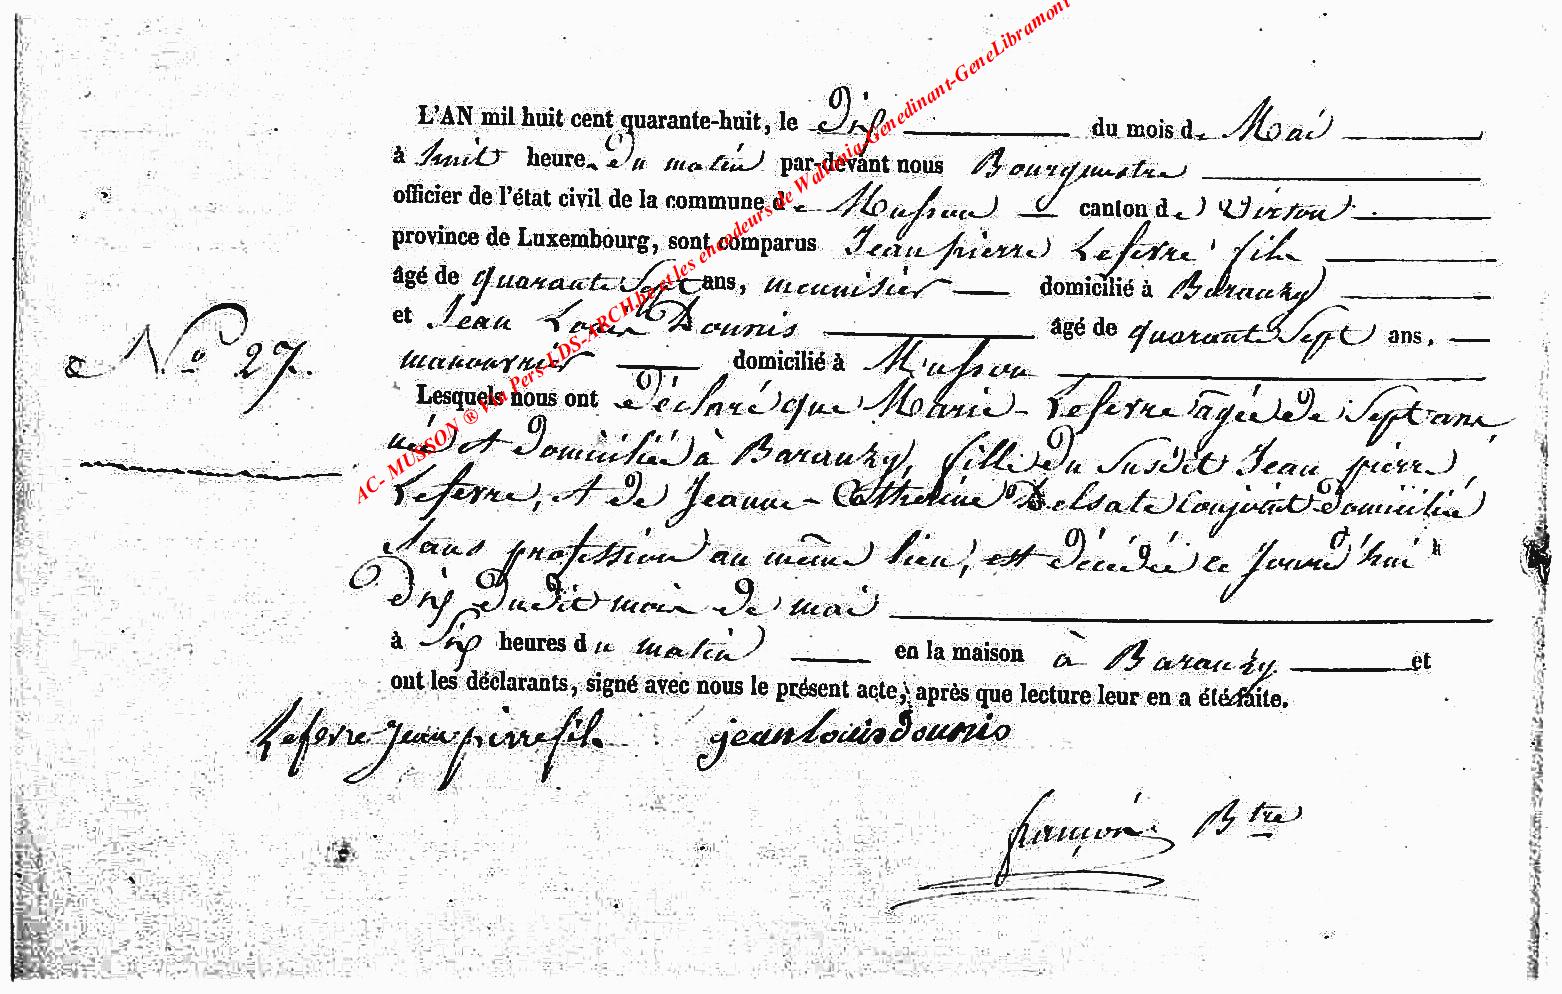 L'AN mil huit cent quarante-huit, le Dix du mois de Mai
à huit heures du matin par-devant nous Bourgmestre
officier de l'état civil de la commune de Musson canton de Virton
province de Luxembourg, sont comparus Jean pierre Lefevre fils
âgé de quarante Sept ans, meunisier domicilié à Baranzy
et Jean Louis Dournis âgé de quarante Sept ans,
N.o 27. manouvrier domicilié à Musson
Lesquels nous ont déclaré que Marie Lefevre agée de Sept ans,
née et domiciliée à Baranzy, fille du Susdit Jean pierre
Lefevre, et de Jeanne Catherine Delsate conjoint domicilié
Sans profession au même lieu, est décédée ce Jourd'hui
dix dudit mois de mai
à Six heures du matin en la maison à Baranzy et
ont les déclarants, signé avec nous le présent acte, après que lecture leur en a été faite.
Lefevre Jean pierre fils jean louis dournis
françois Btre
AC- MUSSON ® Via Pers-LDS-ARCH.be et les encodeurs de Wallonia-Genedinant-GeneLibramont